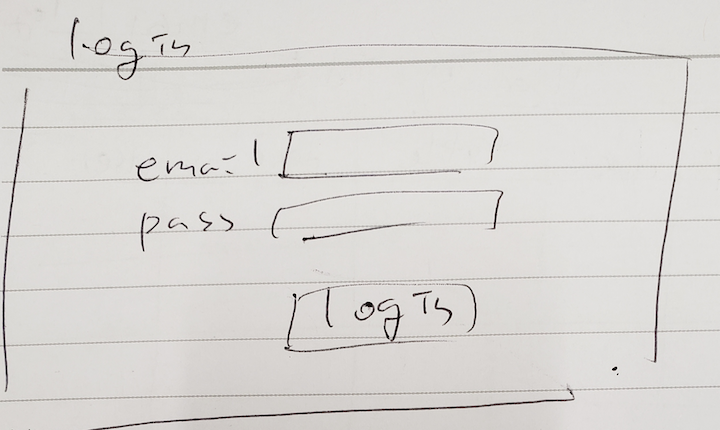 login
email
pass
login